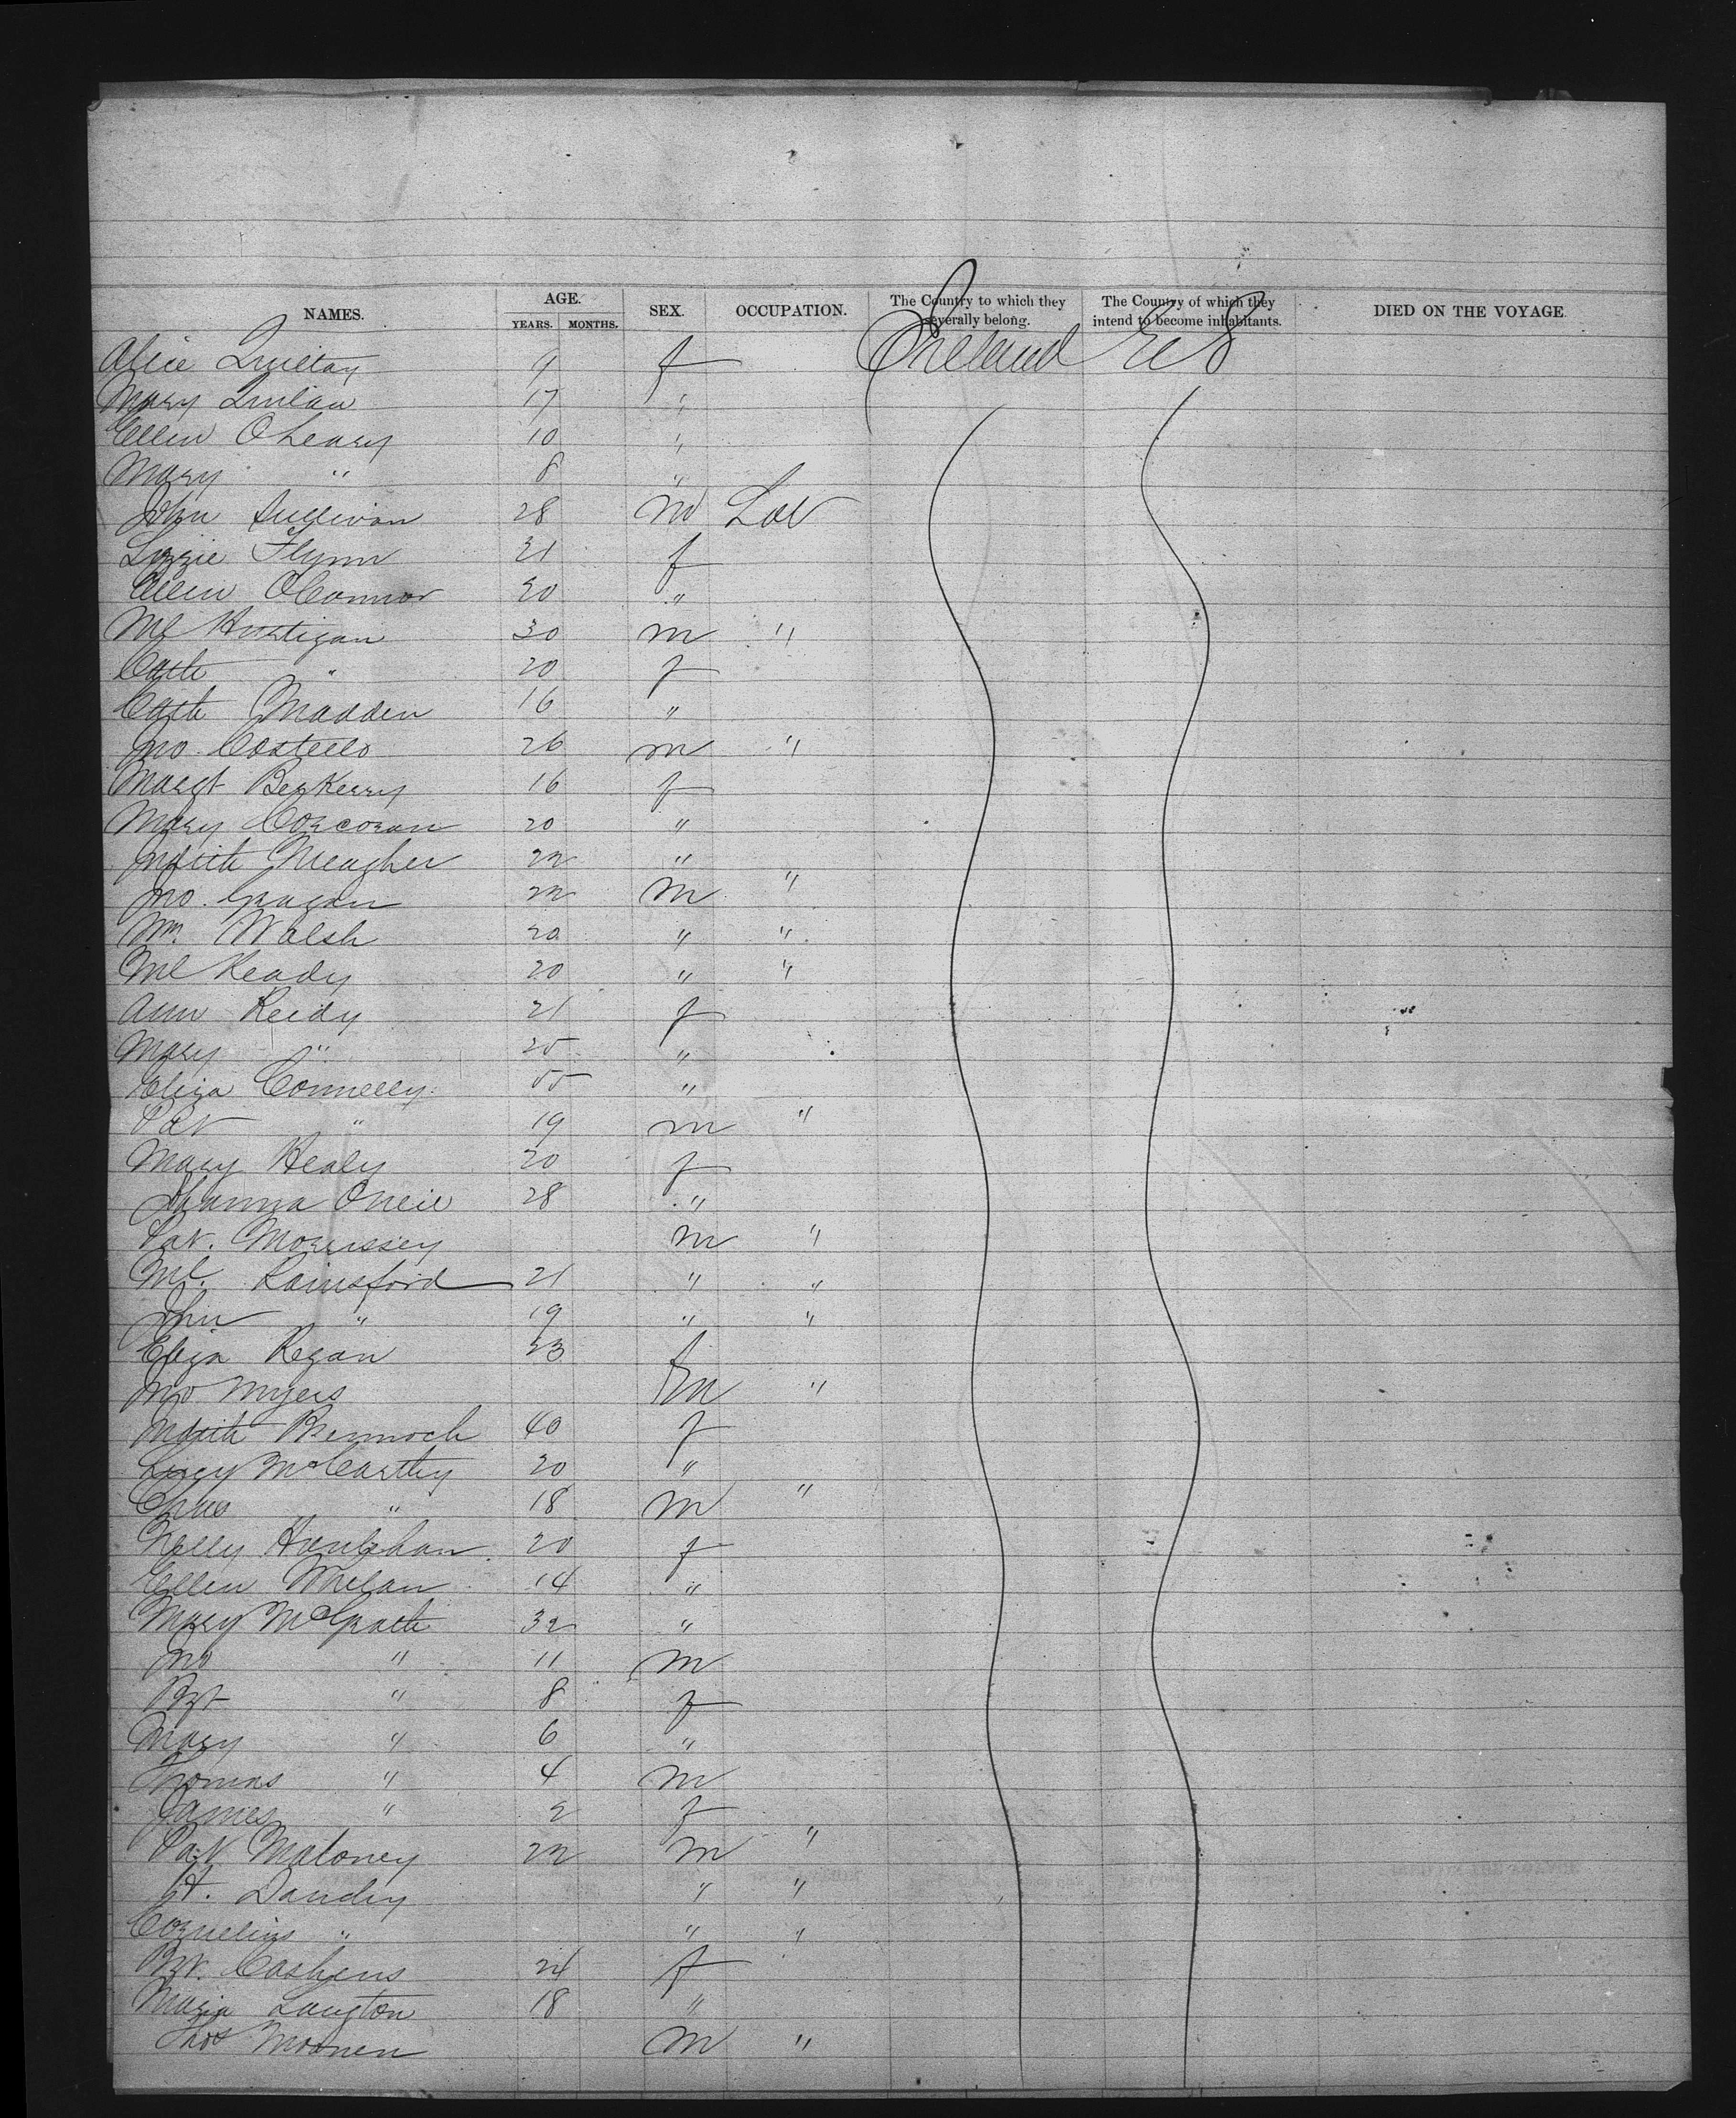 NAMES. AGE. SEX. OCCUPATION. The Country to which they severally belong. The Country of which they intend to become inhabitants. DIED ON THE VOYAGE
YEARS. MONTHS.
Alice Quiltay 9 f Ireland U S
Mary Quilan 17 "
Ellen OLeary 10 "
Mary " 8 "
John Sullivan 28 m Lab
Lizzie Flynn 21 f
Ellen OConnor 20 "
Ml Hartigan 30 m "
Cath " 20 f
Cath Madden 16 "
Jno. Costello 26 m "
Margt Berkerry 16 f
Mary Corcoran 20 "
Judith Meagher 22 "
Jno. Gaugan 22 m "
Wm. Walsh 20 " "
Ml Keady 20 " "
Ann Reidy 21 f
Mary " 25 "
Eliza Connelly 55 "
Pat " 19 m "
Mary Healy 20 f
Johanna ONeil 28 "
Pat. Morrissey m "
Ml. Rainsford 21 " "
John " 19 " "
Eliza Regan 23 f
Jno Myers m "
Judith Bennoch 40 f
Lizzy McCarthy 20 "
Chas " 18 m "
Nelly Houlahan 20 f
Ellen Whelan 14 "
Mary McGrath 32 "
Jno " 11 m
Bgt " 8 f
Mary " 6 "
Thomas " 4 m
James " 2 f
Pat Maloney 22 m "
Dandy " "
Cornelius " " "
Bgt. Cashens 24 f
Maria Langton 18 "
Thos Moonen m "